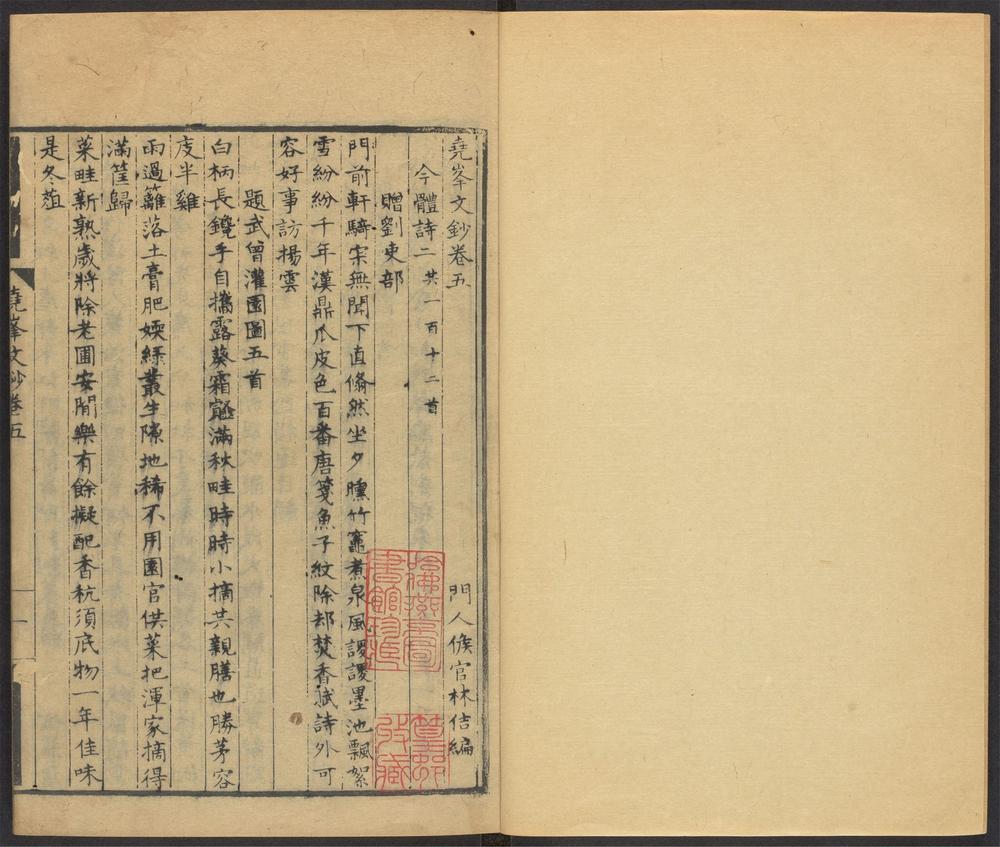 堯峯文鈔卷五
門人候官林佶編
今體詩二共一百十二首
贈劉吏部
門前軒騎寂無聞下直翛然坐夕曛竹竈煮泉風謖謖墨池飄絮
雪紛紛千年漢鼎瓜皮色百番唐箋魚子紋除却焚香賦詩外可
容好事訪揚雲
題武曾灌園圖五首
白柄長鑱手自攜露葵霜𦵔滿秋畦時時小摘共親膳也勝茅容
庋半雞
雨過籬落土膏肥嫩綠叢生隙地稀不用園官供菜把渾家摘得
滿筐歸
菜畦新熟歲將除老圃安閒樂有餘擬配香秔須底物一年佳味
是冬菹
堯峯文鈔卷五
一